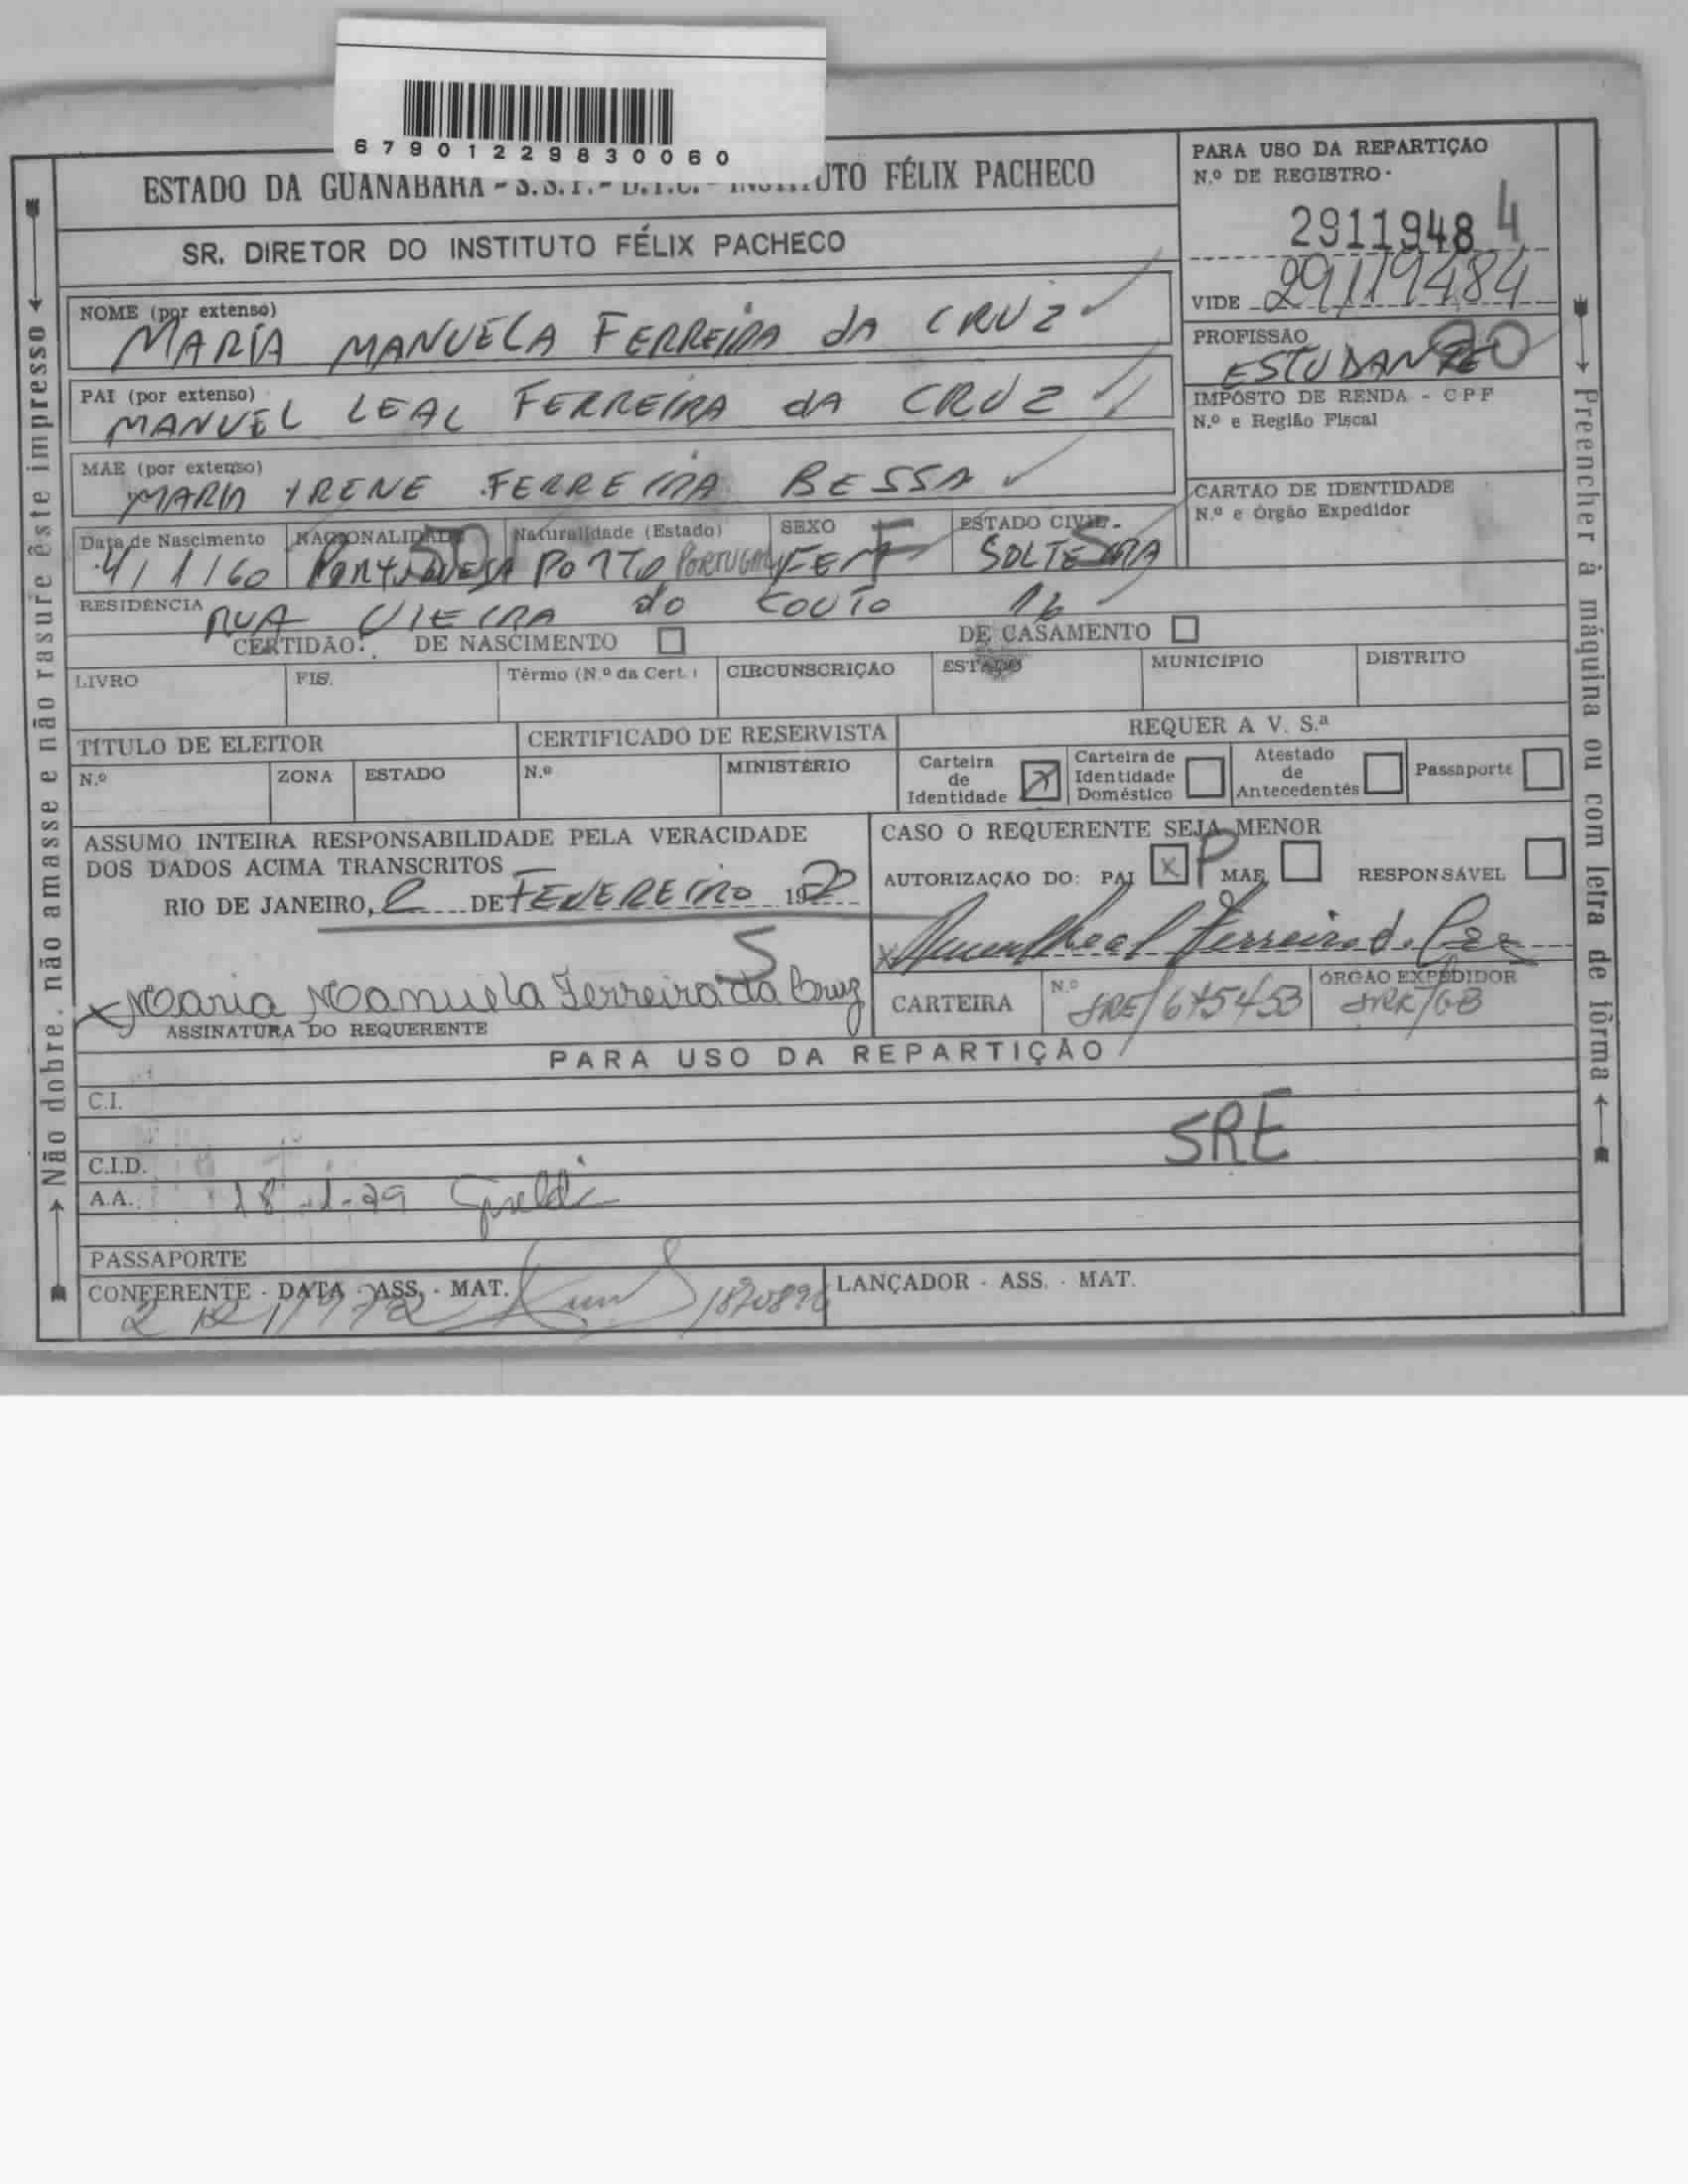 67901229830060
ESTADO DA GUANABARA - S.S.P. - INSTITUTO FÉLIX PACHECO
SR. DIRETOR DO INSTITUTO FÉLIX PACHECO
PARA USO DA REPARTIÇÃO
N.º DE REGISTRO
2911948 4
VIDE 29119484
NOME (por extenso)
MARIA MANUELA FERREIRA dA CRUZ
PROFISSÃO
ESTUDANTE 90
PAI (por extenso)
MANUEL LEAL FERREIRA dA CRUZ
IMPÔSTO DE RENDA - CPF
N.º e Região Fiscal
MÃE (por extenso)
MARIA IRENE FERREIRA BESSA
CARTÃO DE IDENTIDADE
N.º e Órgão Expedidor
Data de Nascimento NACIONALIDADE Naturalidade (Estado) SEXO ESTADO CIVIL
4/1/60 PORTUGUESA PORTO PORTUGAL FEM F SOLTEIRA S
RESIDÊNCIA RUA VIEIRA do COUTO 16
CERTIDÃO: DE NASCIMENTO DE CASAMENTO
LIVRO FLS. Têrmo (N.º da Cert.) CIRCUNSCRIÇÃO ESTADO MUNICÍPIO DISTRITO
TÍTULO DE ELEITOR CERTIFICADO DE RESERVISTA REQUER A V. S.ª
N.º ZONA ESTADO N.º MINISTÉRIO
Carteira de Identidade X Carteira de Identidade Doméstico Atestado de Antecedentes Passaporte
ASSUMO INTEIRA RESPONSABILIDADE PELA VERACIDADE
DOS DADOS ACIMA TRANSCRITOS
RIO DE JANEIRO, 2 DE FEVEREIRO 1972
CASO O REQUERENTE SEJA MENOR
AUTORIZAÇÃO DO: PAI X P MÃE RESPONSÁVEL
Manuel Leal Ferreira da Cruz
S
Maria Manuela Ferreira da Cruz
ASSINATURA DO REQUERENTE
CARTEIRA N.º SRE/675453 ÓRGÃO EXPEDIDOR SRE/GB
PARA USO DA REPARTIÇÃO
C.I.
SRE
C.I.D.
A.A. 18-1-79
PASSAPORTE
CONFERENTE - DATA - ASS. - MAT.
LANÇADOR - ASS. - MAT.
Não dobre, não amasse e não rasure êste impresso
Preencher à máquina ou com letra de fôrma